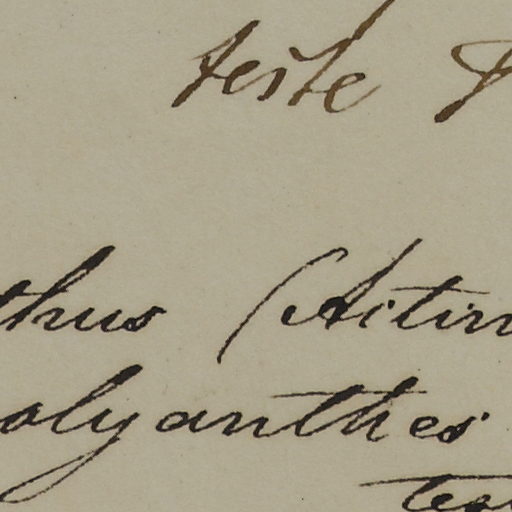 teste
thus (Actin
olyanthes
tes